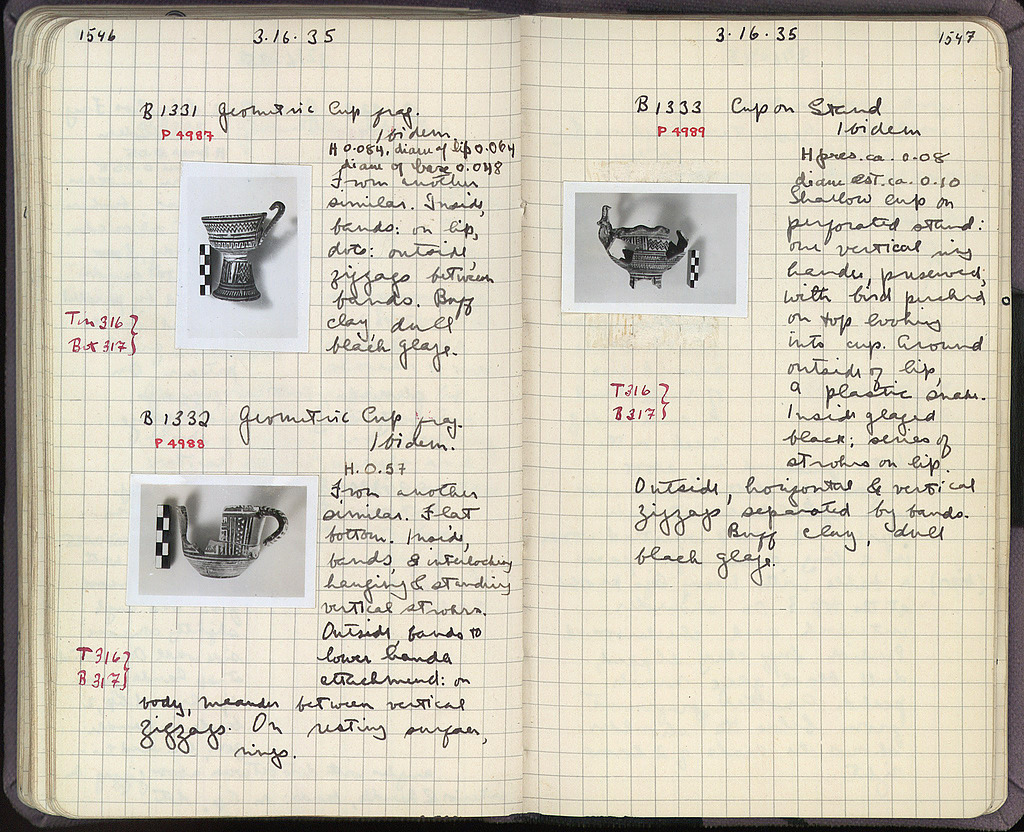 1546
3.16.35
B 1331 Geometric Cup frag.
P 4987
Ibidem
H 0.084, diam of lip 0.064
diam of base 0.048
From another
similar. Inside,
bands: on lip,
dots: outside
zigzags between
bands. Buff
clay, dull
black glaze.
T 316 }
B 317 }
B 1332 Geometric Cup frag.
P 4988
Ibidem.
H. 0.57
From another
similar. Flat
bottom. Inside,
bands, & interlocking
hanging & standing
vertical strokes.
Outside, bands to
lower handle
attachment: on
body, meander between vertical
zigzags. On resting surface,
rings.
T 316 }
B 317 }
3.16.35
1547
B 1333 Cup on Stand
P 4989
Ibidem
H pres. ca. 0.08
diam est. ca. 0.10
Shallow cup on
perforated stand:
one vertical ring
handle, preserved,
with bird perched
on top looking
into cup. Around
outside of lip,
a plastic snake.
Inside glazed
black; series of
strokes on lip.
Outside, horizontal & vertical
zigzags separated by bands.
Buff clay, dull
black glaze.
T 316 }
B 317 }